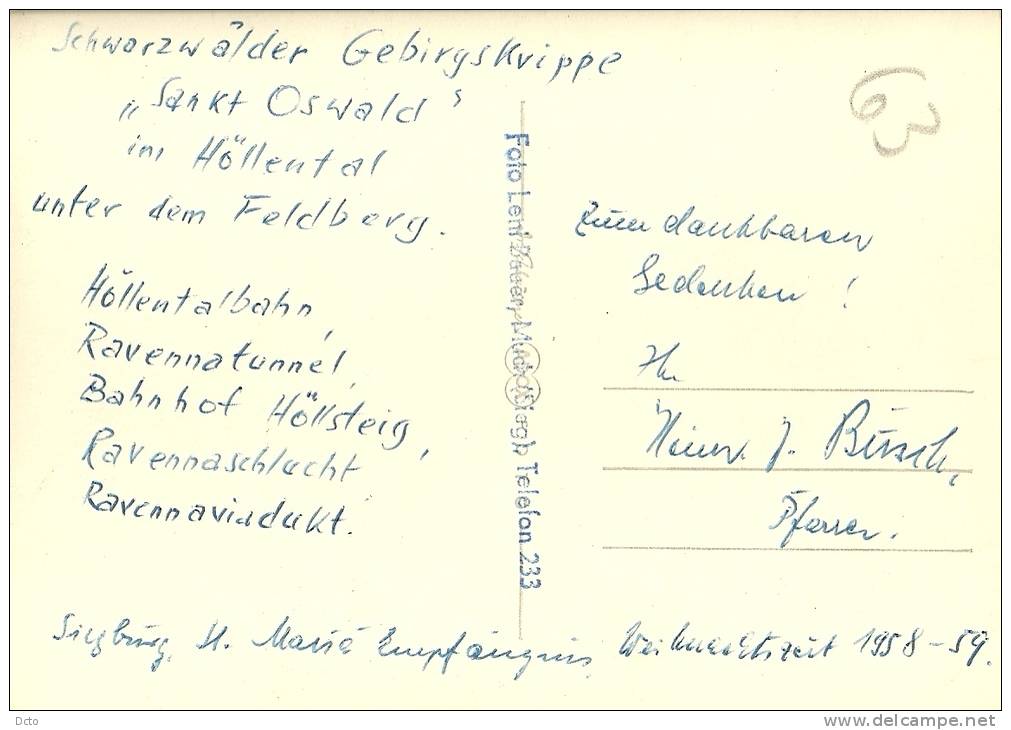 Schwarzwälder Gebirgskrippe
„Sankt Oswald“
im Höllental
unter dem Feldberg.
Höllentalbahn,
Ravennatunnel,
Bahnhof Höllsteig,
Ravennaschlucht
Ravennaviadukt.
Foto Leni Telefon 233
Zum dankbaren
Gedenken!
Ihr
J. Büsch,
Pfarrer.
Siegburg, St. Mariä Empfängnis, Weihnachtszeit 1958-59.
Dcto
www.delcampe.net